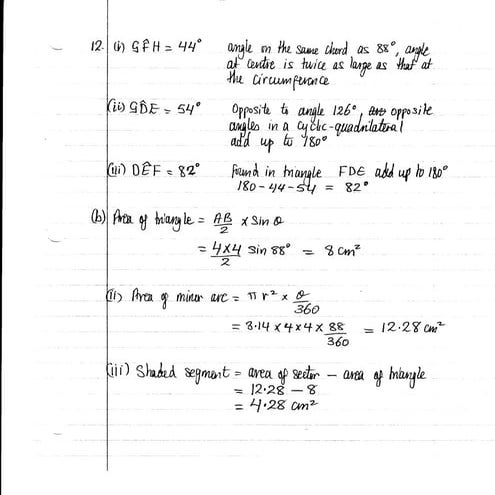 12. (i) GF̂H = 44° angle on the same chord as 88°, angle
at centre is twice as large as that at
the circumference
(ii) GD̂E = 54° Opposite to angle 126°, opposite
angles in a cyclic-quadrilateral
add up to 180°
(iii) DÊF = 82° Found in triangle FDE add up to 180°
180 - 44 - 54 = 82°
(b) Area of triangle = AB/2 × Sin θ
= 4×4/2 Sin 88° = 8 cm²
(ii) Area of minor arc = π r² × θ/360
= 3.14 × 4 × 4 × 88/360 = 12.28 cm²
(iii) Shaded segment = area of sector − area of triangle
= 12.28 − 8
= 4.28 cm²